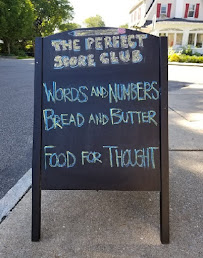 THE PERFECT
SCORE CLUB
WORDS AND NUMBERS
BREAD AND BUTTER
FOOD FOR THOUGHT